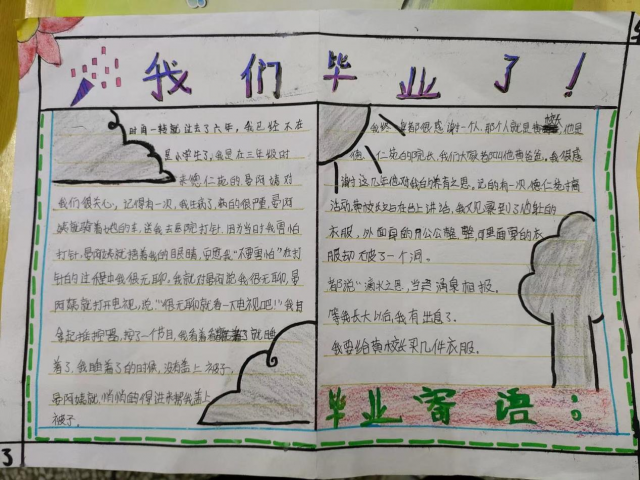 我们毕业了！
时间一转就过去了六年，我已经不在
是小学生了，我是在三年级时
来德仁苑的，曼网
我们很关心，记得有一次，我生病了，病的很严重，曼网
骑着她的车，送我去医院打针，因为当时我害怕
打针，曼网就捂着我的眼睛，安慰我“不要害怕”在打
针的过程中我很无聊，我就对曼网说我很无聊，曼
网就打开电视，说“很无聊就看一下电视吧！”我自
拿起摇控器，按了一个节目，我看着看着就睡
着了，我睡着了的时候，没有盖上被子，
曼网就悄悄的进来帮我盖上
被子。
我终身都很感谢一个人，那个人就是黄校长他是
德仁苑的院长，我们大家都叫他黄爸爸，我很感
谢这几年他对我的养育之恩，记的有一次，德仁苑才搞
活动，黄校长站在台上讲话，我看到了他的
衣服，外面穿的工工整整，可里面穿的衣
服却破了一个洞。
都说“滴水之恩，当涌泉相报。
等我长大以后，我有出息了，
我要给黄校长买几件衣服。
毕业寄语：
3
5